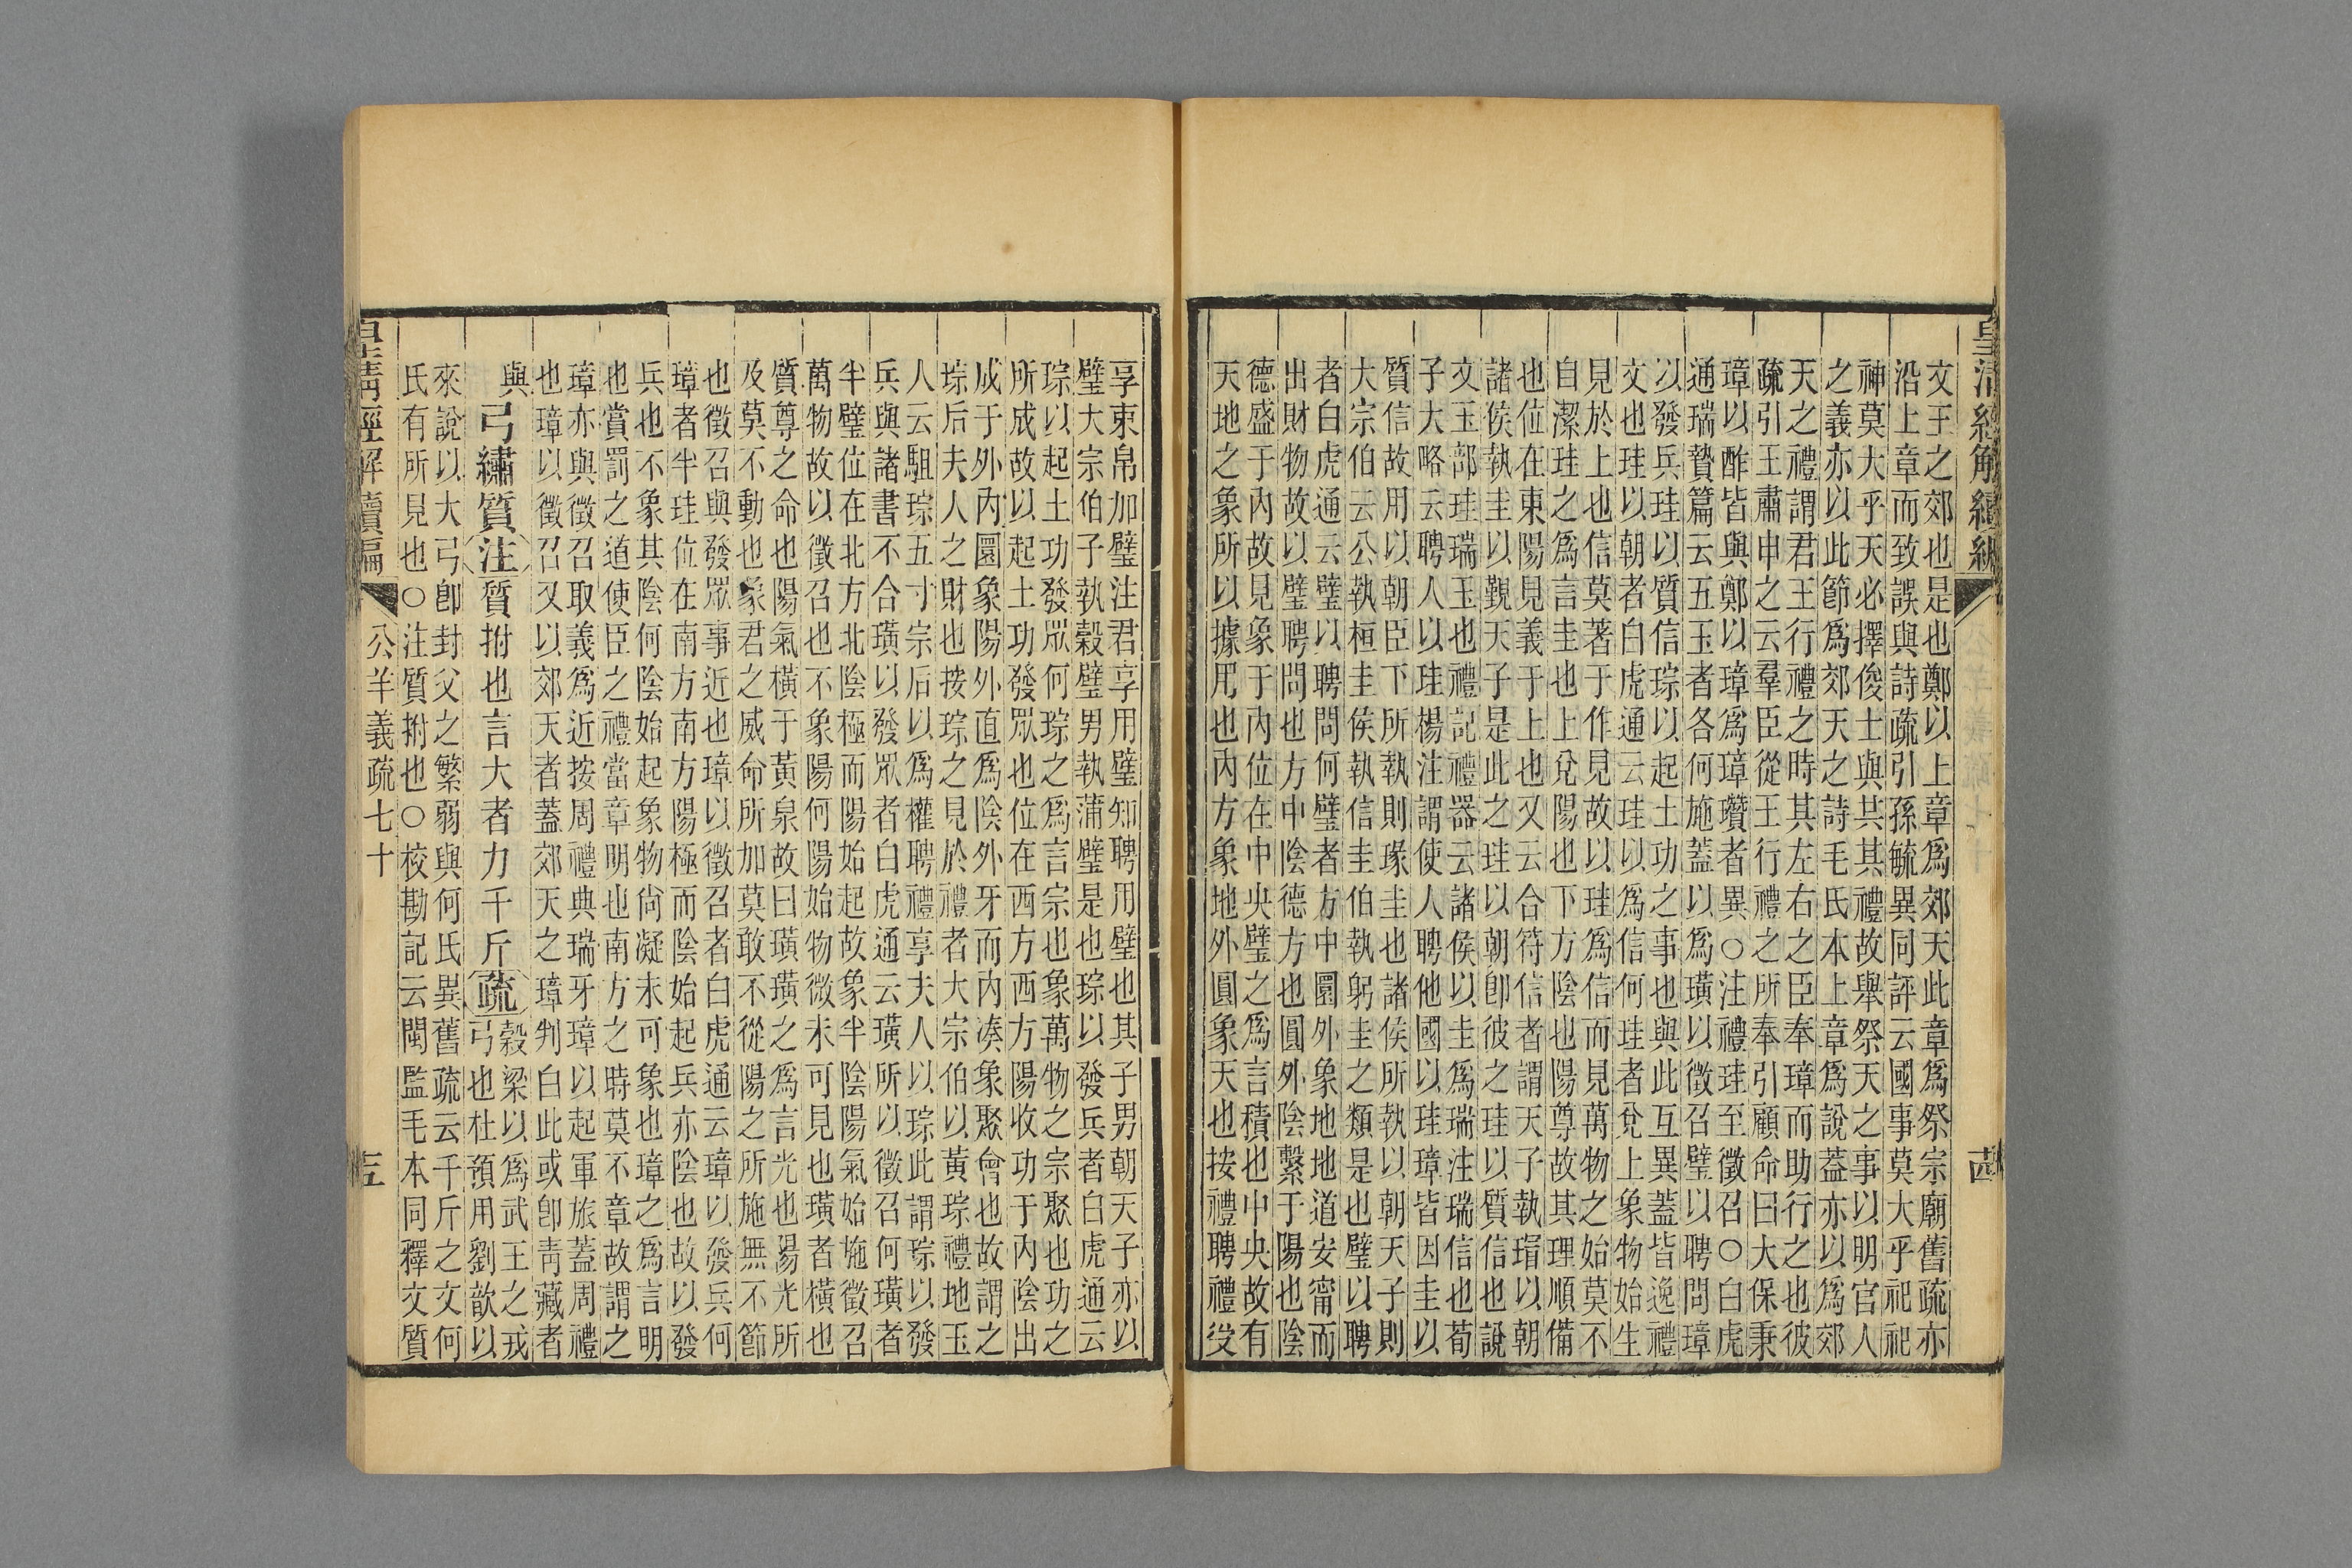 皇清經解續編
文王之郊也是也鄭以上章爲郊天此章爲祭宗廟舊疏亦
沿上章而致誤與詩疏引孫毓異同評云國事莫大乎祀祀
神莫大乎天必擇俊士與共其禮故舉祭天之事以明官人
之義亦以此節爲郊天之詩毛氏本上章爲說葢亦以爲郊
天之禮謂君王行禮之時其左右之臣奉璋而助行之也彼
疏引王肅申之云羣臣從王行禮之所奉引顧命曰大保秉
璋以酢皆與鄭以璋爲璋瓚者異○注禮珪至徵召○白虎
通瑞贄篇云五玉者各何施蓋以爲璜以徵召璧以聘問璋
以發兵珪以質信琮以起土功之事也與此互異蓋皆逸禮
文也珪以朝者白虎通云珪以爲信何珪者兌上象物始生
見於上也信莫著于作見故以珪爲信而見萬物之始莫不
自潔珪之爲言圭也上兌陽也下方陰也陽尊故其理順備
也位在東陽見義于上也又云合符信者謂天子執瑁以朝
諸侯執圭以覲天子是此之珪以朝卽彼之珪以質信也說
文玉部珪瑞玉也禮記禮器云諸侯以圭爲瑞注瑞信也荀
子大略云聘人以珪楊注謂使人聘他國以珪璋皆因圭以
質信故用以朝臣下所執則瑑圭也諸侯所執以朝天子則
大宗伯云公執桓圭侯執信圭伯執躬圭之類是也璧以聘
者白虎通云璧以聘問何璧者方中圜外象地地道安甯而
出財物故以璧聘問也方中陰德方也圓外陰繫于陽也陰
德盛于內故見象于內位在中央璧之爲言積也中央故有
天地之象所以據用也內方象地外圓象天也按禮聘禮受
享束帛加璧注君享用璧知聘用璧也其子男朝天子亦以
璧大宗伯子執榖璧男執蒲璧是也琮以發兵者白虎通云
琮以起土功發眾何琮之爲言宗也象萬物之宗聚也功之
所成故以起土功發眾也位在西方西方陽收功于內陰出
成于外內圜象陽外直爲陰外牙而內湊象聚會也故謂之
琮后夫人之財也按琮之見於禮者大宗伯以黃琮禮地玉
人云駔琮五寸宗后以爲權聘禮享夫人以琮此謂琮以發
兵與諸書不合璜以發眾者白虎通云璜所以徵召何璜者
半璧位在北方北陰極而陽始起故象半陰陽氣始施徵召
萬物故以徵召也不象陽何陽始物微未可見也璜者橫也
質尊之命也陽氣橫于黃泉故曰璜璜之爲言光也陽光所
及莫不動也象君之威命所加莫敢不從陽之所施無不節
也徵召與發眾事近也璋以徵召者白虎通云璋以發兵何
璋者半珪位在南方南方陽極而陰始起兵亦陰也故以發
兵也不象其陰何陰始起象物尙凝未可象也璋之爲言明
也賞罰之道使臣之禮當章明也南方之時莫不章故謂之
璋亦與徵召取義爲近按周禮典瑞牙璋以起軍旅蓋周禮
也璋以徵召又以郊天者蓋郊天之璋判白此或卽靑藏者
與
弓繡質注質拊也言大者力千斤疏
榖梁以爲武王之戎
弓也杜預用劉歆以
來說以大弓卽封父之繁弱與何氏異舊疏云千斤之文何
氏有所見也○注質拊也○校勘記云閩監毛本同釋文質
皇清經解續編
公羊義疏七十